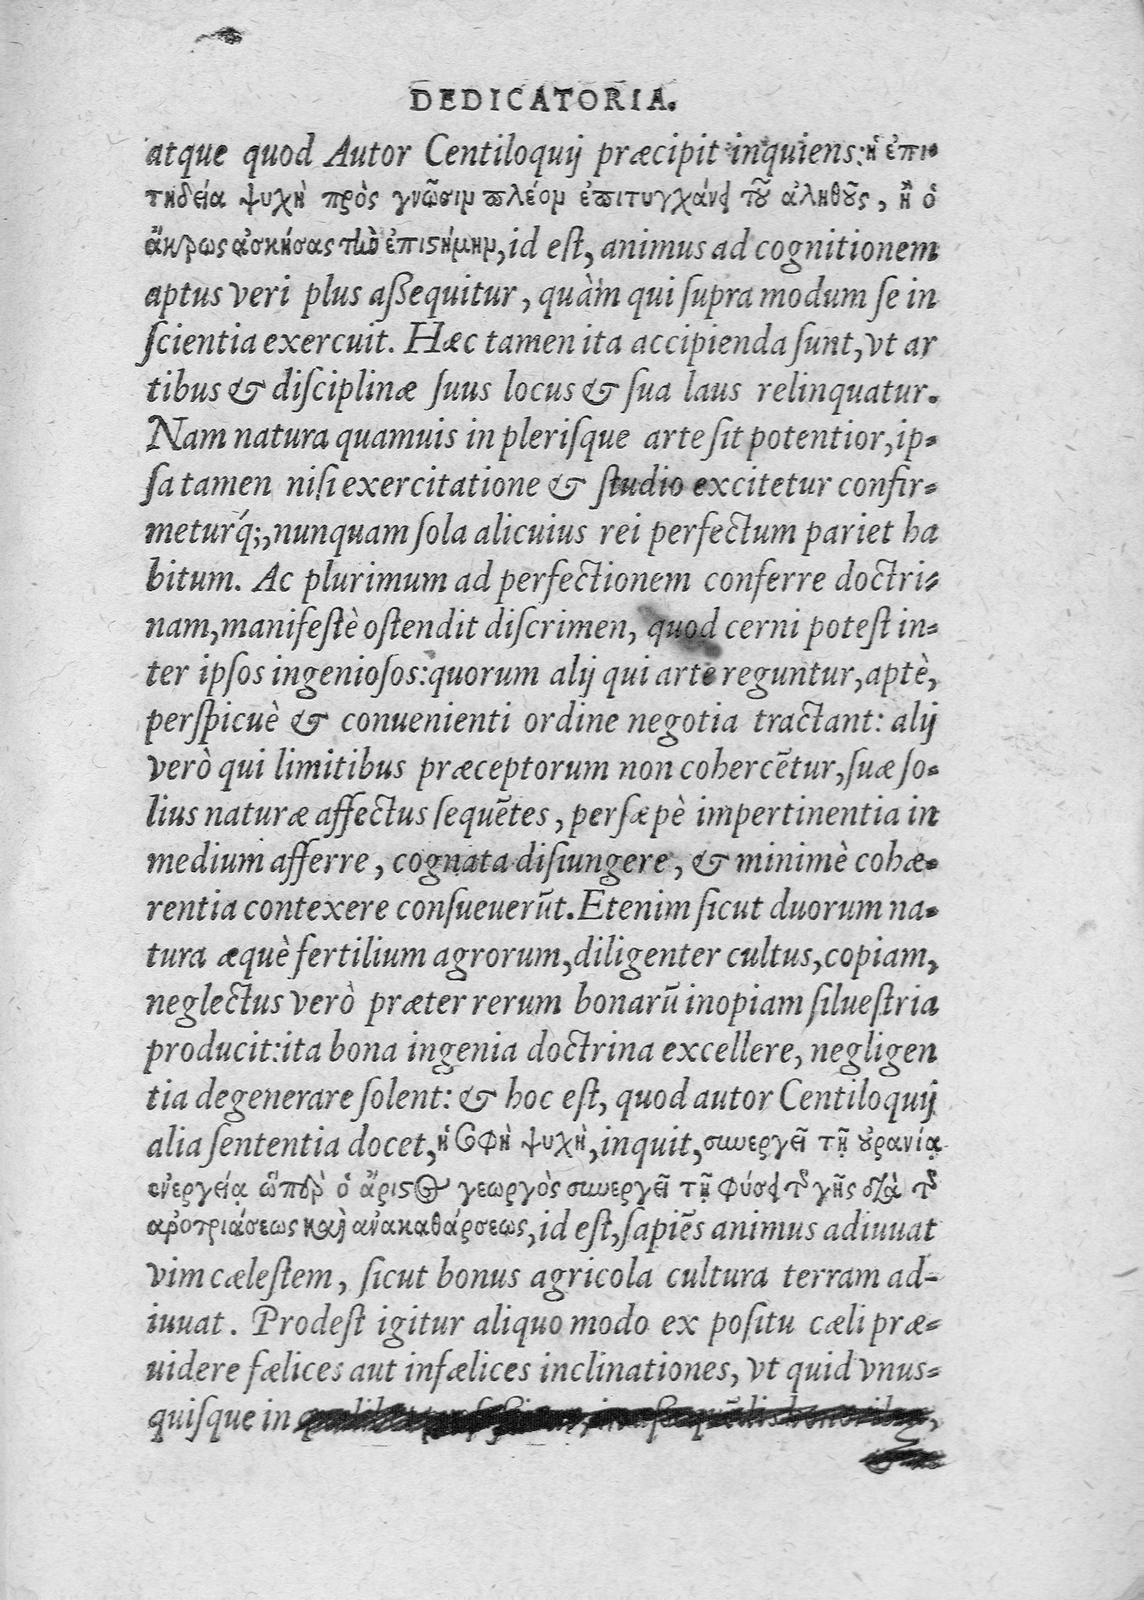 DEDICATORIA.
atque quod Autor Centiloquij præcipit inquiens: ἡ ἐπι-
τηδεία ψυχὴ πρὸς γνῶσιν πλέον ἐπιτυγχάνει τοῦ ἀληθοῦς, ἢ ὁ
ἄκρως ἀσκήσας τὼ ἐπιστήμην, id eſt, animus ad cognitionem
aptus veri plus aßequitur, quàm qui ſupra modum ſe in
ſcientia exercuit. Hæc tamen ita accipienda ſunt, vt ar
tibus & diſciplinæ ſuus locus & ſua laus relinquatur.
Nam natura quamuis in pleriſque arte ſit potentior, ip-
ſa tamen niſi exercitatione & ſtudio excitetur confir-
metur´q;, nunquam ſola alicuius rei perfectum pariet ha
bitum. Ac plurimum ad perfectionem conferre doctri-
nam, manifeſtè oſtendit diſcrimen, quod cerni poteſt in-
ter ipſos ingenioſos: quorum alij qui arte reguntur, aptè,
perſpicuè & conuenienti ordine negotia tractant: alij
verò qui limitibus præceptorum non cohercētur, ſuæ ſo-
lius naturæ affectus ſequētes, perſæpè impertinentia in
medium afferre, cognata diſiungere, & minimè cohæ-
rentia contexere conſueuerūt. Etenim ſicut duorum na-
tura æquè fertilium agrorum, diligenter cultus, copiam,
neglectus verò præter rerum bonarū inopiam ſilueſtria
producit: ita bona ingenia doctrina excellere, negligen
tia degenerare ſolent: & hoc eſt, quod autor Centiloquij
alia ſententia docet, ἡ σοφὴ ψυχὴ, inquit, συνεργεῖ τῇ οὐρανίᾳ
ἐνεργείᾳ ὥσπερ ὁ ἄριστος γεωργὸς συνεργεῖ τῇ φύσει τῆς γῆς διὰ τῆς
ἀροτριάσεως καὶ ἀνακαθάρσεως, id eſt, ſapiēs animus adiuuat
vim cæleſtem, ſicut bonus agricola cultura terram ad-
iuuat. Prodeſt igitur aliquo modo ex poſitu cæli præ-
uidere fælices aut infælices inclinationes, vt quid vnus-
quiſque in